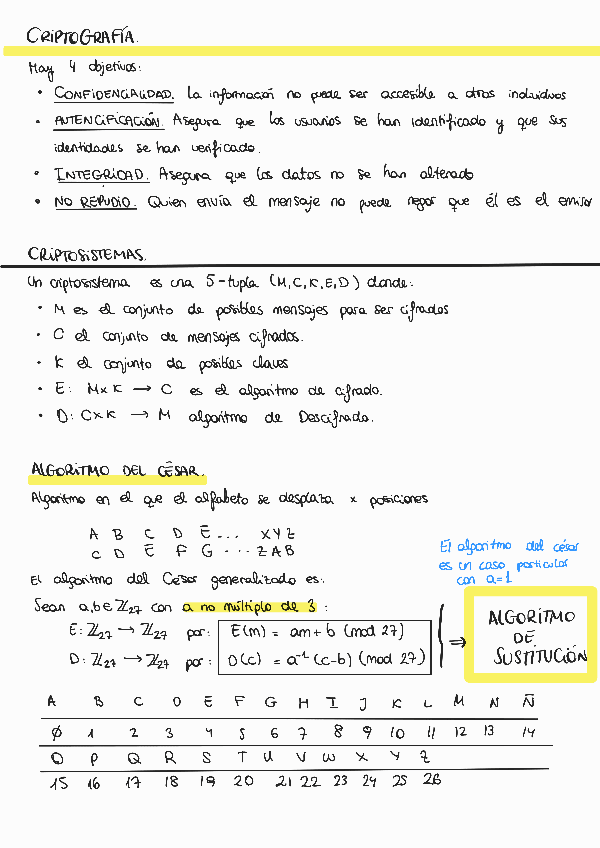 CRIPTOGRAFÍA.
Hay 4 objetivos:
• CONFIDENCIALIDAD. La información no puede ser accesible a otros individuos
• AUTENCIFICACIÓN. Asegura que los usuarios se han identificado y que sus
identidades se han verificado.
• INTEGRIDAD. Asegura que los datos no se han alterado
• NO REPUDIO. Quien envía el mensaje no puede negar que él es el emisor
CRIPTOSISTEMAS.
Un criptosistema es una 5-tupla (M,C,K,E,D) donde:
• M es el conjunto de posibles mensajes para ser cifrados
• C el conjunto de mensajes cifrados.
• K el conjunto de posibles claves
• E: M×K → C es el algoritmo de cifrado.
• D: C×K → M algoritmo de Descifrado.
ALGORITMO DEL CÉSAR.
Algoritmo en el que el alfabeto se desplaza x posiciones
A B C D E... X Y Z
C D E F G ... Z A B
El algoritmo del César generalizado es:
El algoritmo del césar
es un caso particular
con a=1
Sean a,b ∈ ℤ27 con a no múltiplo de 3:
E: ℤ27 → ℤ27 por: E(m) = am+b (mod 27)
D: ℤ27 → ℤ27 por: D(c) = a⁻¹(c-b) (mod 27)
⇒ ALGORITMO
DE
SUSTITUCIÓN
A B C D E F G H I J K L M N Ñ
0 1 2 3 4 5 6 7 8 9 10 11 12 13 14
O P Q R S T U V W X Y Z
15 16 17 18 19 20 21 22 23 24 25 26